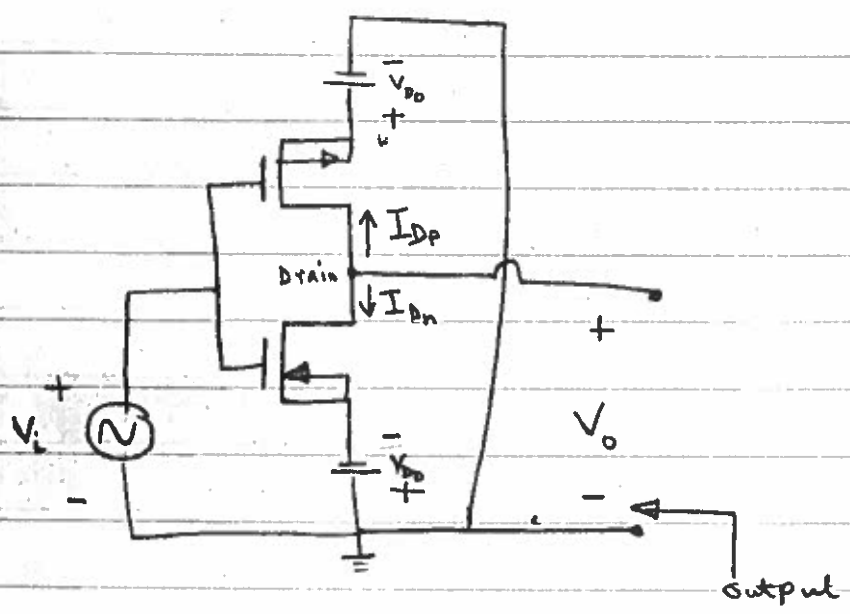 -
V_DD
+
I_Dp
Drain
I_Dn
+
+
V_i
V_o
-
V_DD
+
-
-
output